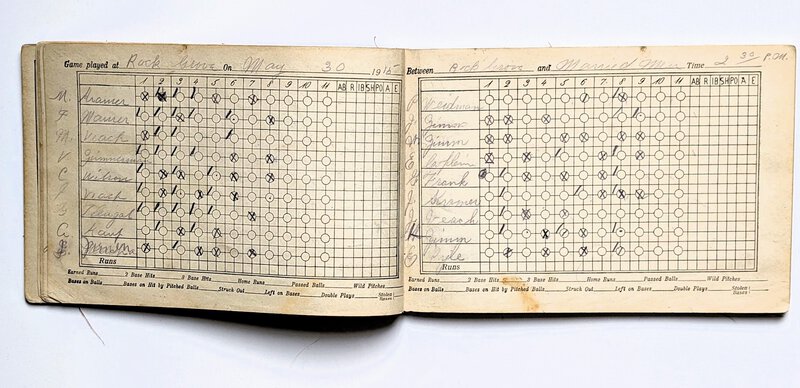 Game played at Rock Grove On May 30 1915
1 2 3 4 5 6 7 8 9 10 11 AB R IB SH PO A E
M. Kramer
F Maurer
M. Veach
V. Zimmerman
C Wilson
Veach
C. Kauf
Runs
Earned Runs 2 Base Hits 3 Base Hits Home Runs Passed Balls Wild Pitches
Bases on Balls Bases on Hit by Pitched Balls Struck Out Left on Bases Double Plays Stolen Bases
Between Rock Grove and Married Men Time 2 30 P.M.
1 2 3 4 5 6 7 8 9 10 11 AB R IB SH PO A E
P Weidman
Zimm
W Zimm
E
H Frank
J.
J Veach
H Zimm
Runs
Earned Runs 2 Base Hits 3 Base Hits Home Runs Passed Balls Wild Pitches
Bases on Balls Bases on Hit by Pitched Balls Struck Out Left on Bases Double Plays Stolen Bases